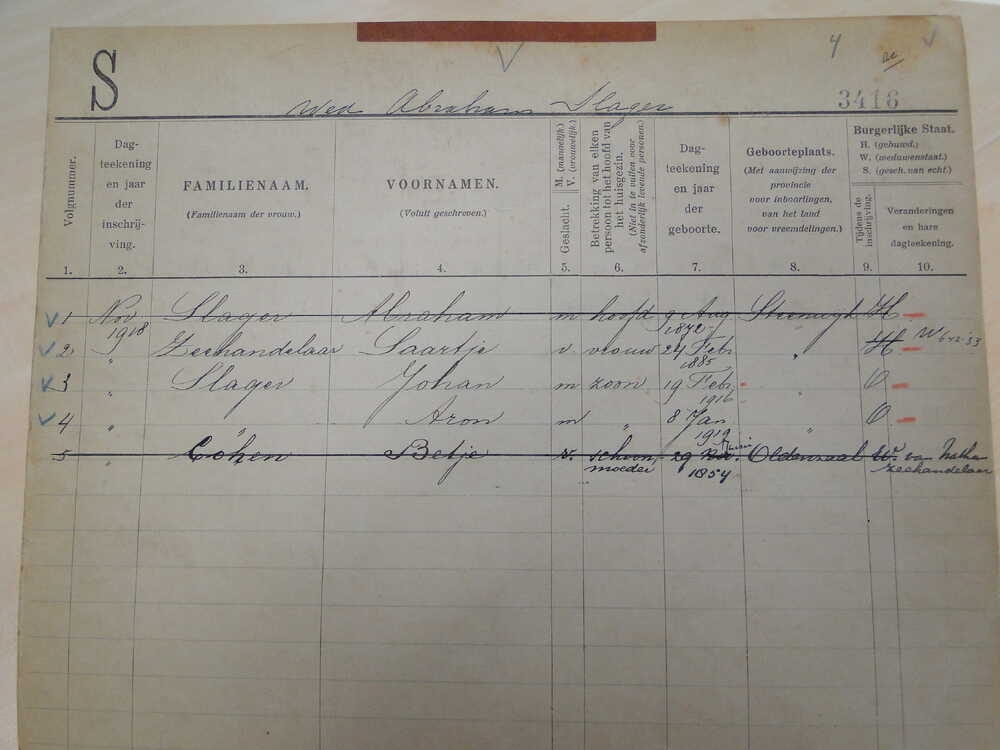 S
4
Wed Abraham Slager
3416
Volgnummer.
1.
Dag-
teekening
en jaar
der
inschrij-
ving.
2.
FAMILIENAAM.
(Familienaam der vrouw.)
3.
VOORNAMEN.
(Voluit geschreven.)
4.
Geslacht. M. (mannelijk) V. (vrouwelijk.)
5.
Betrekking van elken
persoon tot het hoofd van
het huisgezin.
(Niet in te vullen voor
afzonderlijk levende personen.)
6.
Dag-
teekening
en jaar
der
geboorte.
7.
Geboorteplaats.
(Met aanwijzing der
provincie
voor inboorlingen,
van het land
voor vreemdelingen.)
8.
Burgerlijke Staat.
H. (gehuwd.)
W. (weduwenstaat.)
S. (gesch. van echt.)
Tijdens de
inschrijving.
9.
Veranderingen
en hare
dagteekening.
10.
1 Nov 1918 Slager Abraham m hoofd 9 Aug 1872 Steenwijk H
2 " Zeehandelaar Saartje v. vrouw 24 Febr 1885 " H W 6-12-33
3 " Slager Johan m zoon 19 Febr 1916 " O
4 " " Aron m " 8 Jan 1919 " O
5 " Cohen Betje v. schoon-moeder 29 1854 Oldenzaal W. van Nathan Zeehandelaar